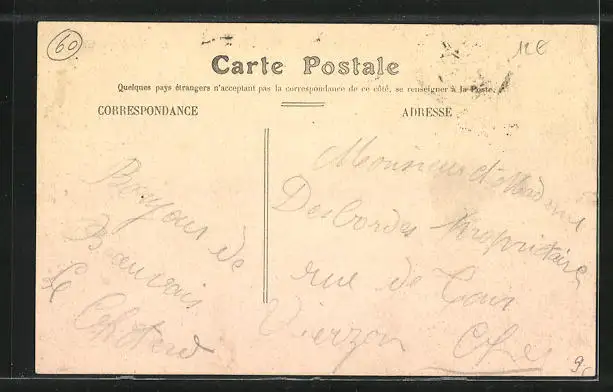 60
12€
Carte Postale
Quelques pays étrangers n'acceptant pas la correspondance de ce côté, se renseigner à la Poste.
CORRESPONDANCE
ADRESSE
Bonjour de
Beauvais
Monsieur et Madame
Desbordes Propriétaire
rue de Tour
Vierzon Cher